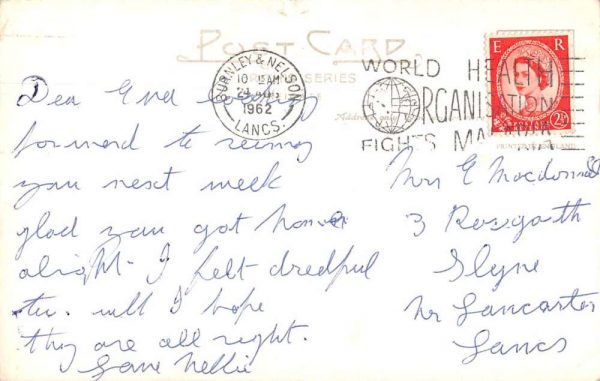 POST CARD
SERIES
BURNLEY & NELSON
10 15 AM
1962
LANCS.
WORLD HEALTH
ORGANISATION
FIGHTS MALARIA
E R
2½
Dea Enid looking
forward to seeing
you next week
glad you got home
alright. I felt dredful
well I hope
they are all right.
Love Nellie
Mrs E Macdonald
3 Rosgarth
Slyne
Nr Lancaster
Lancs